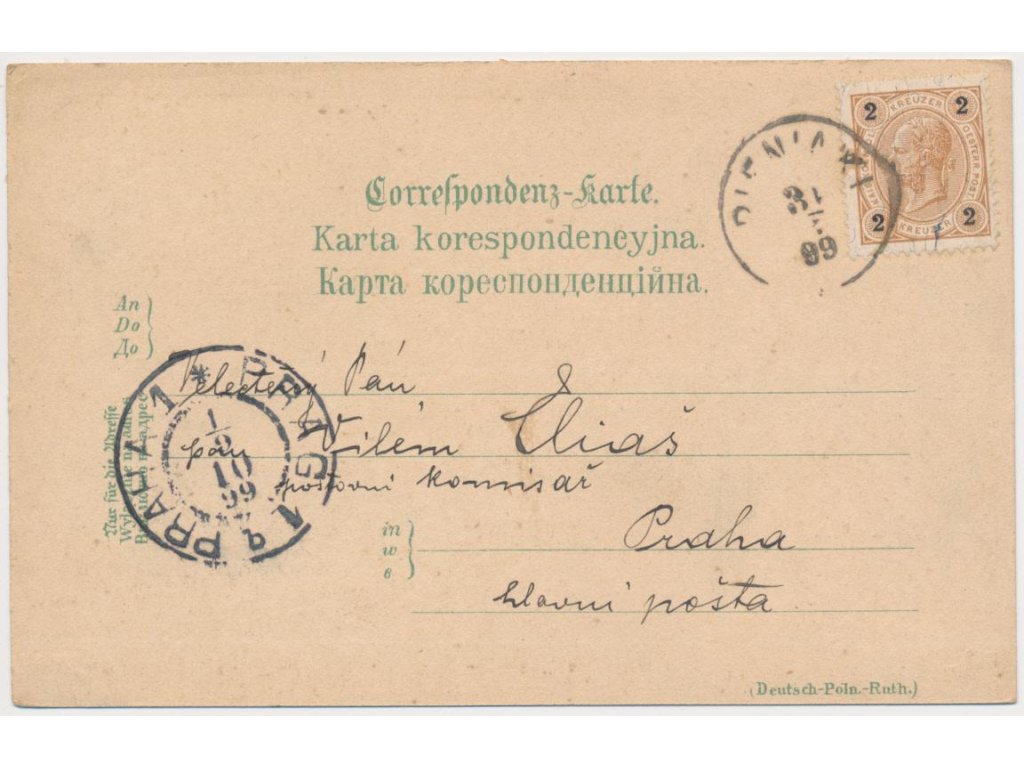 2 KREUZER 2
OESTERR. POST
2 KREUZER 2
PIENIAKI
31
99
Correspondenz-Karte.
Karta korespondencyjna.
Карта кореспонденційна.
An
Do
До
Velectěný Pán
pán Vilém Eliáš
poštovní komisař
in
w
в
Praha
hlavní pošta
PRAG 1 * PRAHA 1
1/9
10
99
a
Nur für die Adresse
(Deutsch-Poln.-Ruth.)